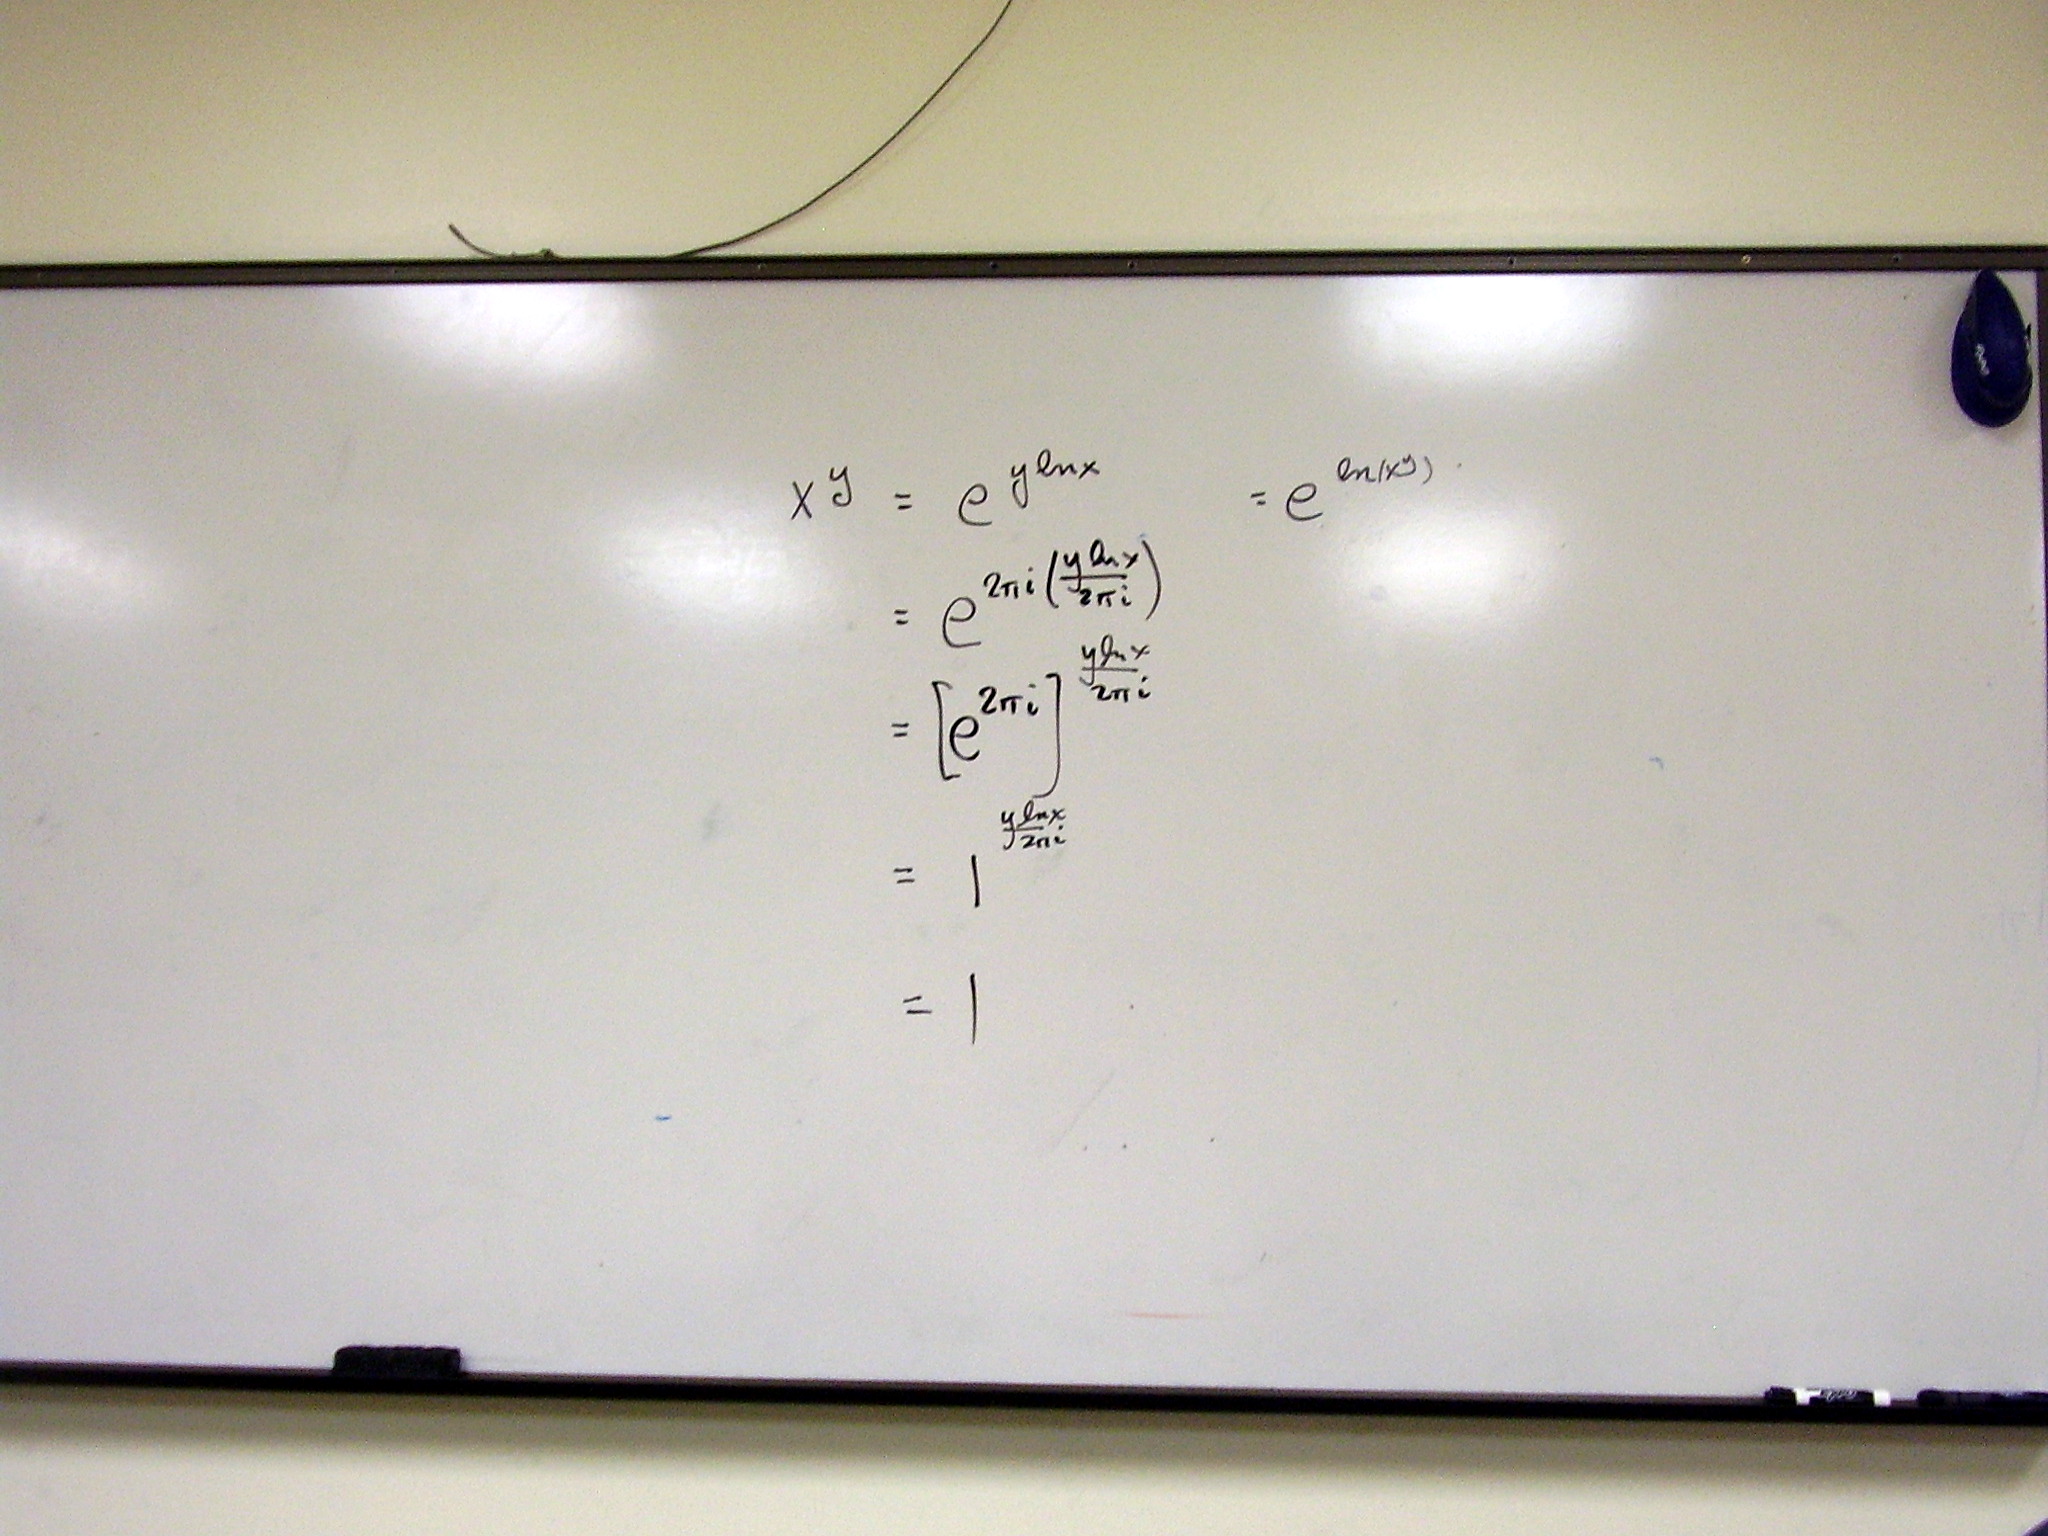 x^y = e^{y ln x} = e^{ln(x^y)}
= e^{2πi (y ln x / 2πi)}
= [e^{2πi}]^{y ln x / 2πi}
= 1^{y ln x / 2πi}
= 1